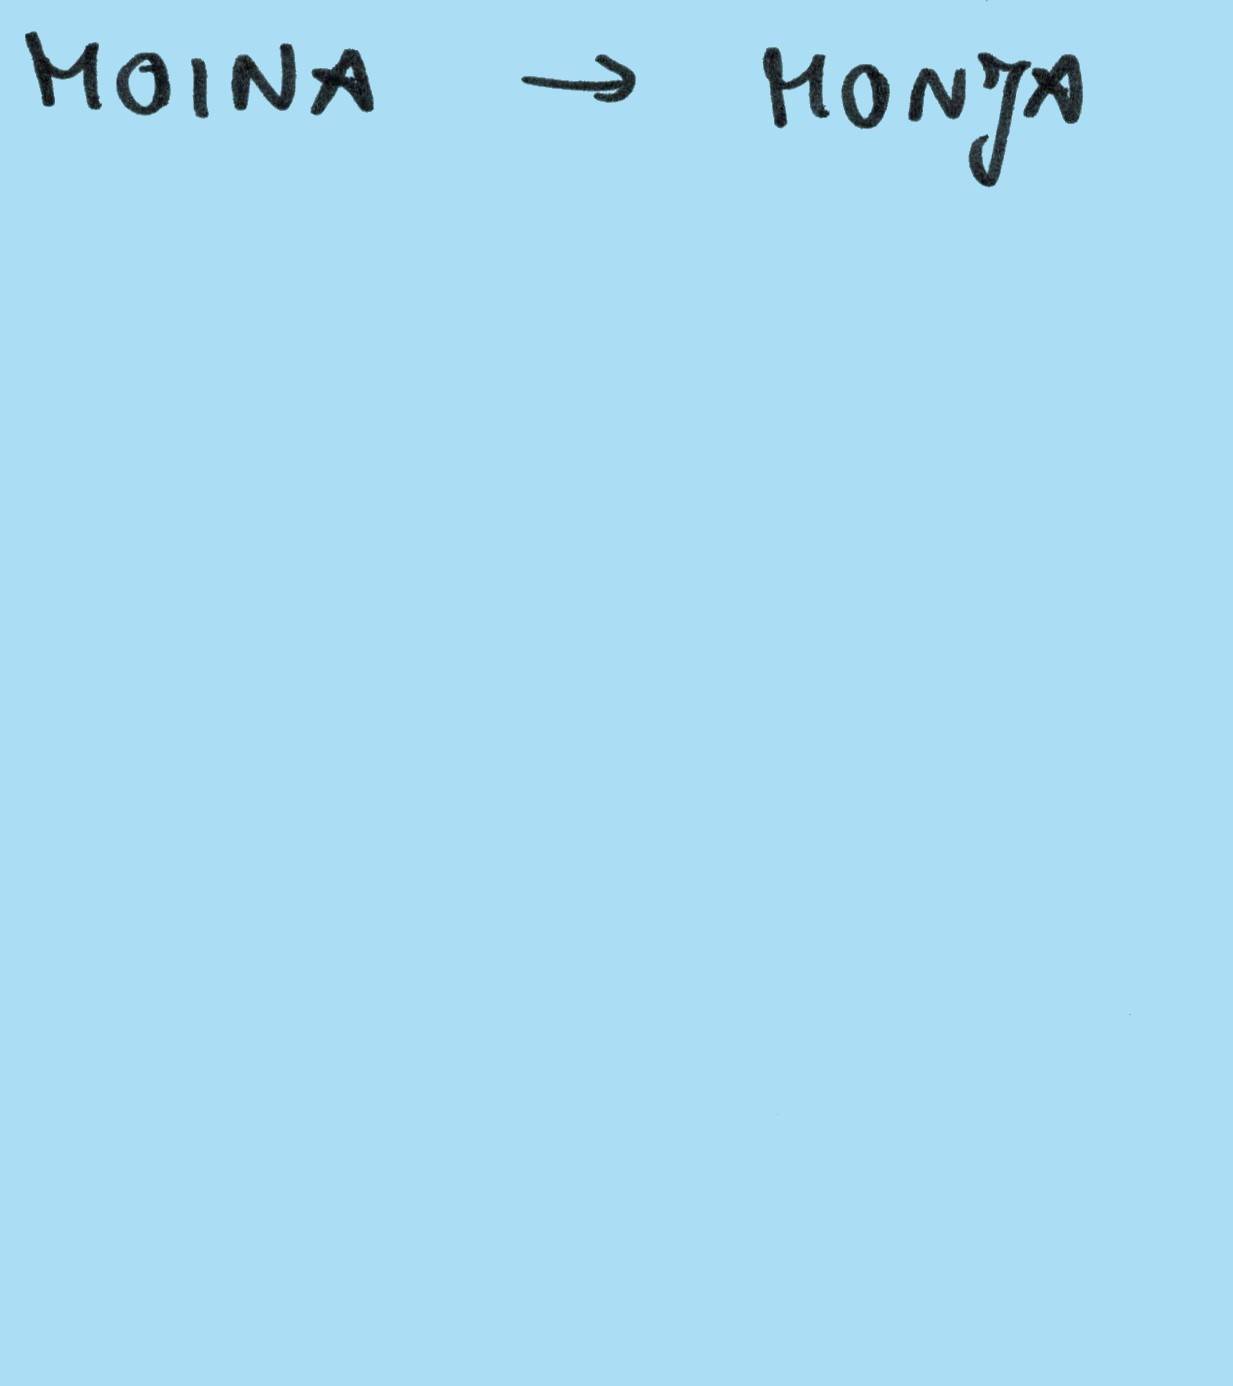 MOINA → MONJA